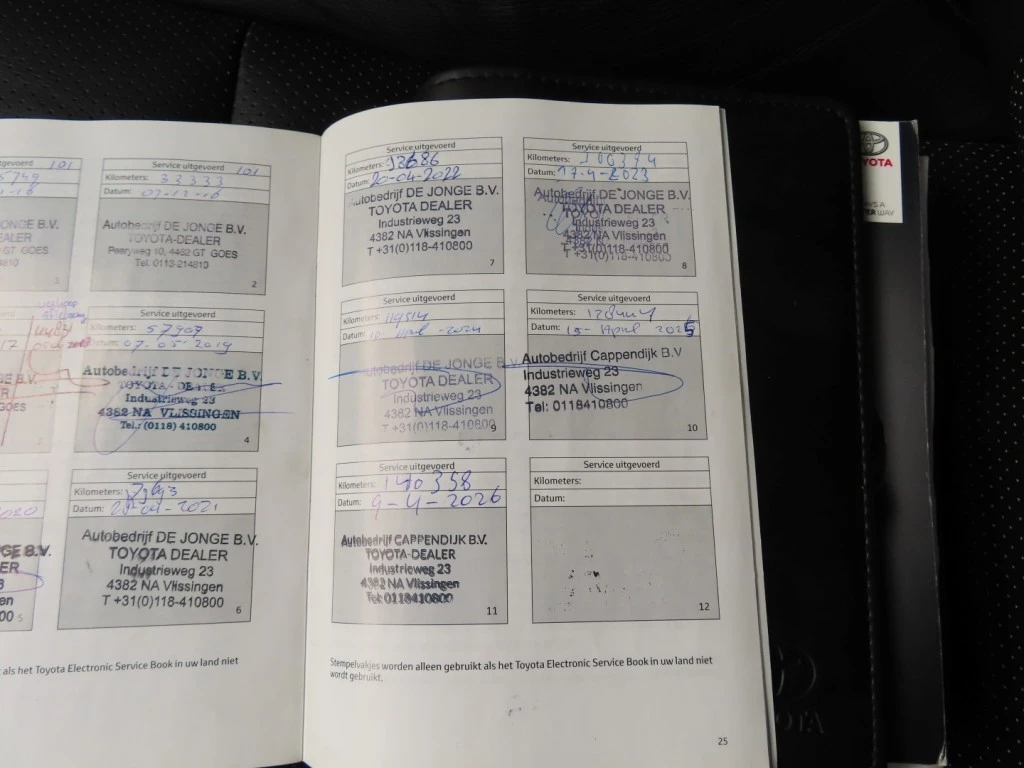 Service uitgevoerd
101
Service uitgevoerd 101
Kilometers: 32333
Datum: 07-12-16
NGE B.V.
EALER
GT GOES
Autobedrijf DE JONGE B.V.
TOYOTA-DEALER
4462 GT GOES
Tel. 0113-214810
1
2
Service uitgevoerd
Kilometers: 57907
Datum: 07-05-2019
Autobedrijf DE JONGE B.V.
TOYOTA-DEALER
Industrieweg 23
4382 NA VLISSINGEN
Tel.: (0118) 410800
4
Service uitgevoerd
Kilometers:
Datum:
Autobedrijf DE JONGE B.V.
TOYOTA DEALER
Industrieweg 23
4382 NA Vlissingen
T +31(0)118-410800
5
6
als het Toyota Electronic Service Book in uw land niet
Service uitgevoerd
Kilometers: 93686
Datum: 20-04-2022
Autobedrijf DE JONGE B.V.
TOYOTA DEALER
Industrieweg 23
4382 NA Vlissingen
T +31(0)118-410800
7
Service uitgevoerd
Kilometers: 100374
Datum: 17-4-2023
Autobedrijf DE JONGE B.V.
TOYOTA DEALER
Industrieweg 23
4382 NA Vlissingen
T +31(0)118-410800
8
Service uitgevoerd
Kilometers: 119514
Datum: 10-April-2024
Autobedrijf DE JONGE B.V.
TOYOTA DEALER
Industrieweg 23
4382 NA Vlissingen
T +31(0)118-410800
9
Service uitgevoerd
Kilometers:
Datum: 15-April 2025
Autobedrijf Cappendijk B.V
Industrieweg 23
4382 NA Vlissingen
Tel: 0118410800
10
Service uitgevoerd
Kilometers: 140358
Datum: 9-4-2026
Autobedrijf CAPPENDIJK B.V.
TOYOTA-DEALER
Industrieweg 23
4382 NA Vlissingen
Tel: 0118410800
11
Service uitgevoerd
Kilometers:
Datum:
12
Stempelvakjes worden alleen gebruikt als het Toyota Electronic Service Book in uw land niet
wordt gebruikt.
25